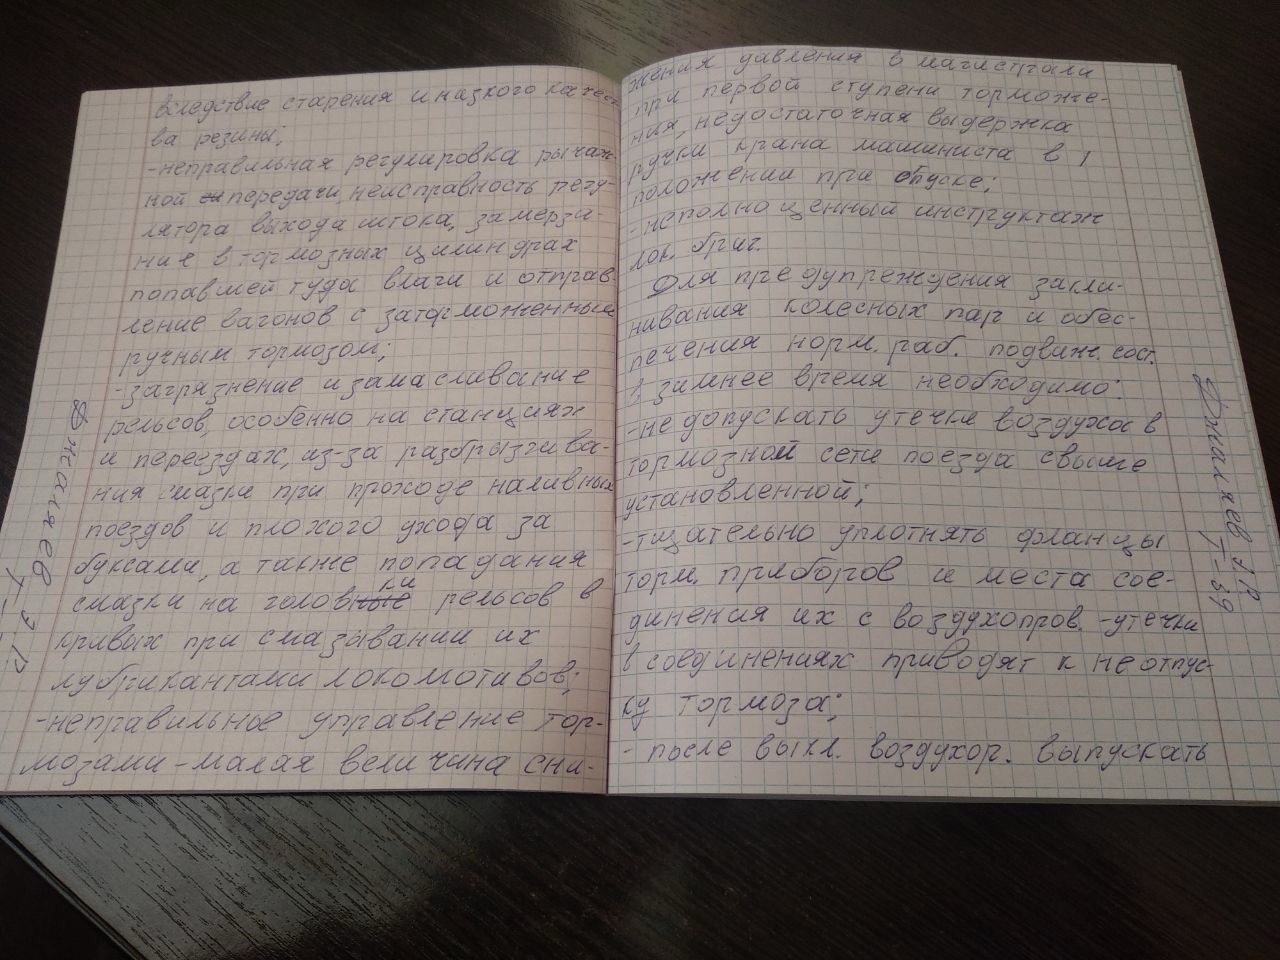 вследствие старения и назкого качест-
ва резины;
-неправильная регулировка рычаж-
ной передачи, неисправность регу-
лятора выхода штока, замерза-
ние в тормозных цилиндрах
попавшей туда влаги и отправ-
ление вагонов с заторможенным
ручным тормозом;
-загрязнение и замасливание
рельсов, особенно на станциях
и переездах, из-за разбрызгива-
ния смазки при проходе наливных
поездов и плохого ухода за
буксами, а также попадания
смазки на головки рельсов в
кривых при смазывании их
лубрикантами локомотивов;
-неправильное управление тор-
мозами-малая величина сни-
жения давления в магистрали
при первой ступени торможе-
ния, недостаточная выдержка
ручки крана машиниста в I
положении при отпуске;
-неполноценный инструктаж
лок. бриг.
Для предупреждения закли-
нивания колесных пар и обес-
печения норм. раб. подвиж. сост.
в зимнее время необходимо:
-не допускать утечки воздуха в
тормозной сети поезда свыше
установленной;
-тщательно уплотнять фланцы
торм. приборов и места сое-
динения их с воздухопров. -утечки
в соединениях приводят к неотпус-
ку тормоза;
- после выкл. воздухор. выпускать